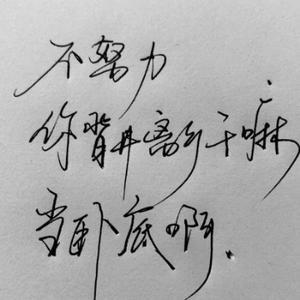 不努力
你背井离乡干嘛
当卧底啊.